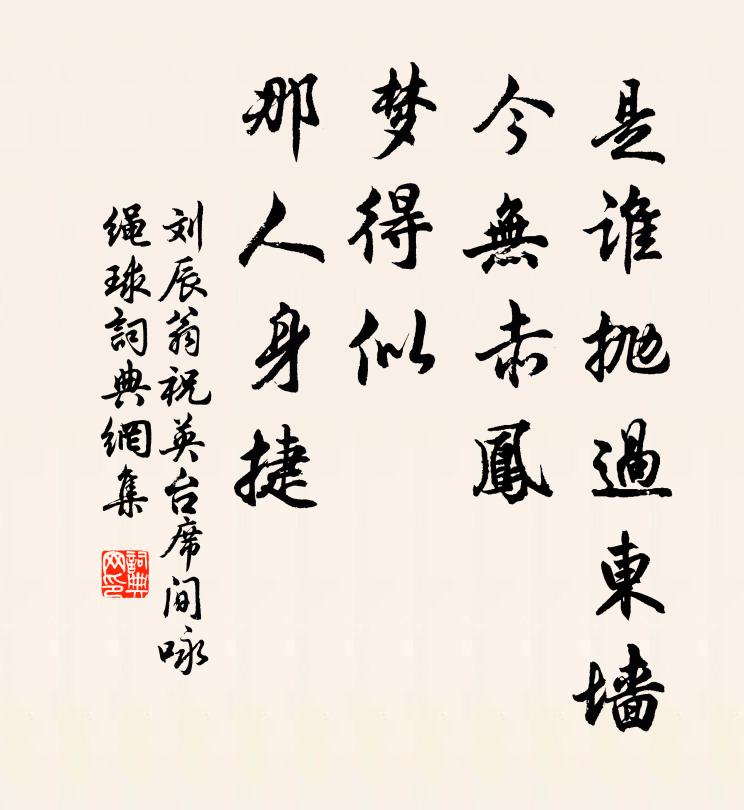 是谁抛過東墙
今無赤鳳
梦得似
那人身捷
刘辰翁祝英台席间咏
绳球詞典網集
詞典
网印